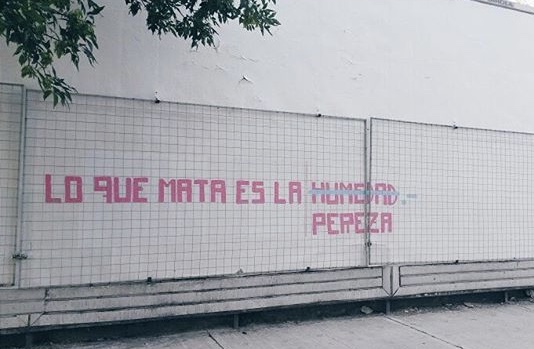 LO QUE MATA ES LA HUMEDAD.-
PEREZA